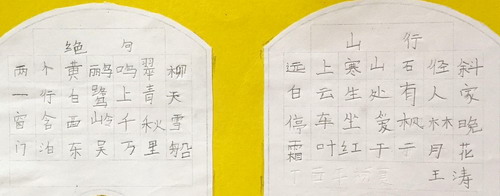 绝句
两个黄鹂鸣翠柳
一行白鹭上青天
窗含西岭千秋雪
门泊东吴万里船
山行
远上寒山石径斜
白云生处有人家
停车坐爱枫林晚
霜叶红于二月花
王涛